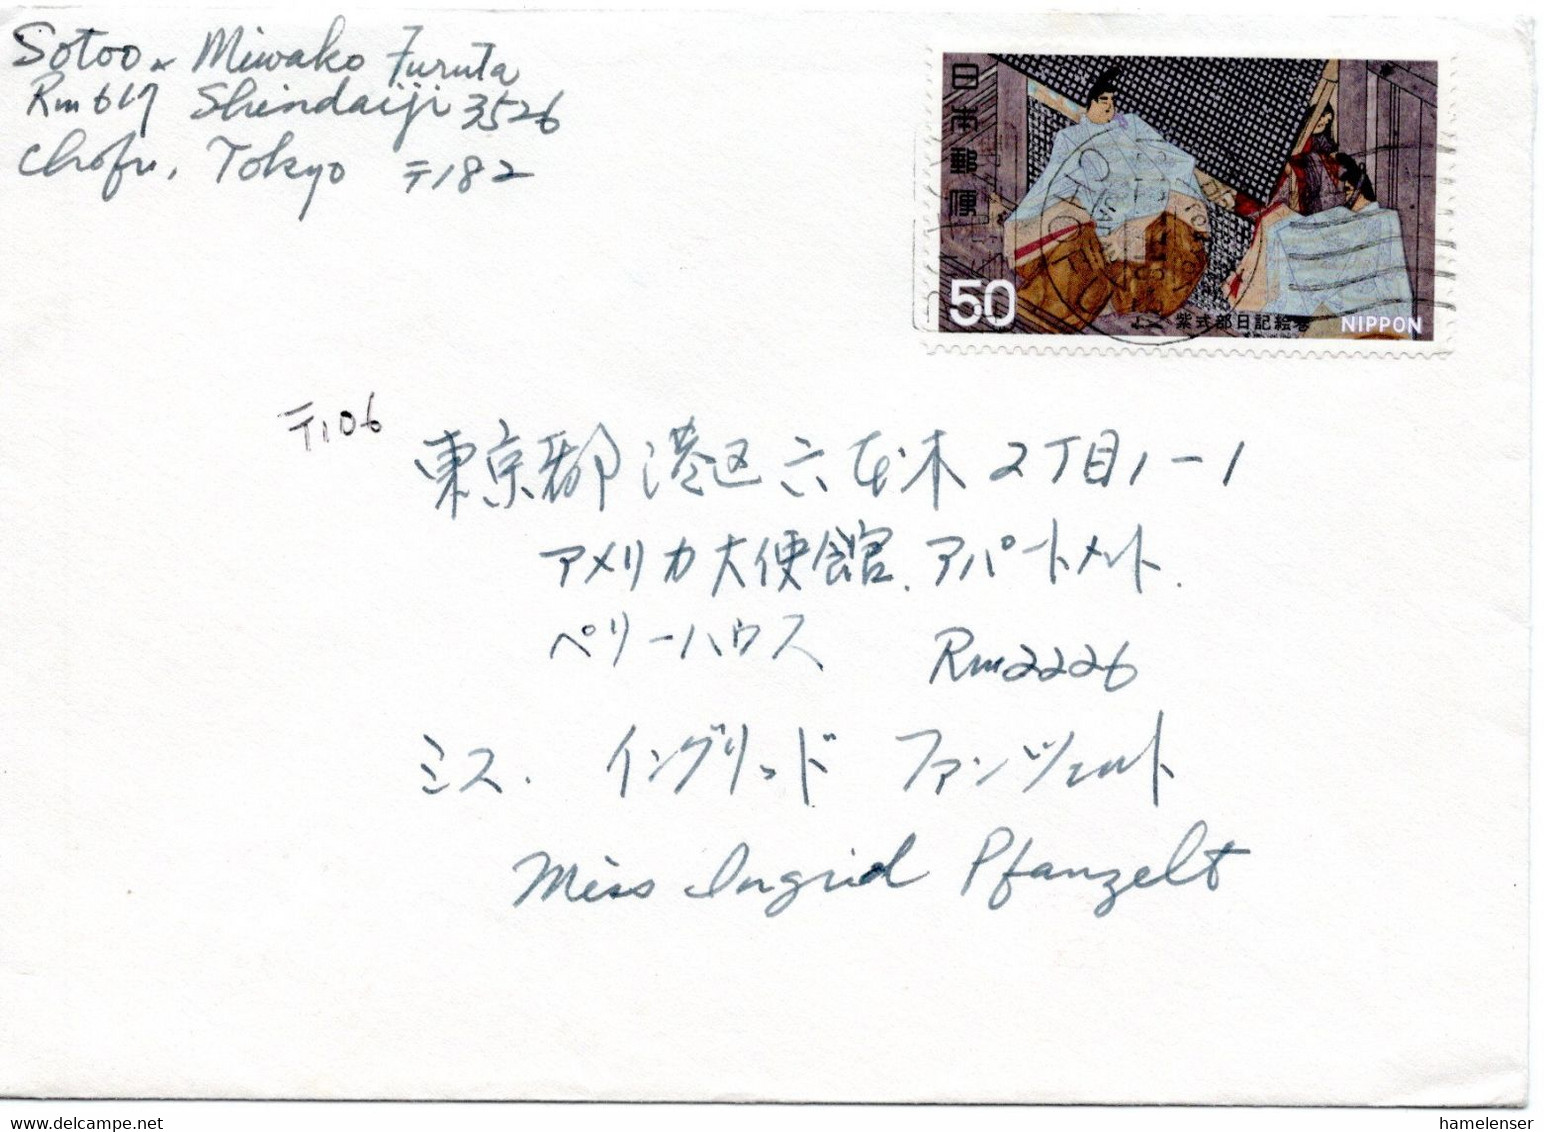 Sotoo & Miwako Furuta
Rm 617 Shindaiji 3526
Chofu, Tokyo 〒182
日本郵便
50
紫式部日記絵巻
NIPPON
CHOFU
TOKYO
〒106
東京都港区六本木2丁目1-1
アメリカ大使館.アパートメント.
ペリーハウス Rm2226
ミス. イングリッド ファンツェルト
Miss Ingrid Pfanzelt
hamelenser